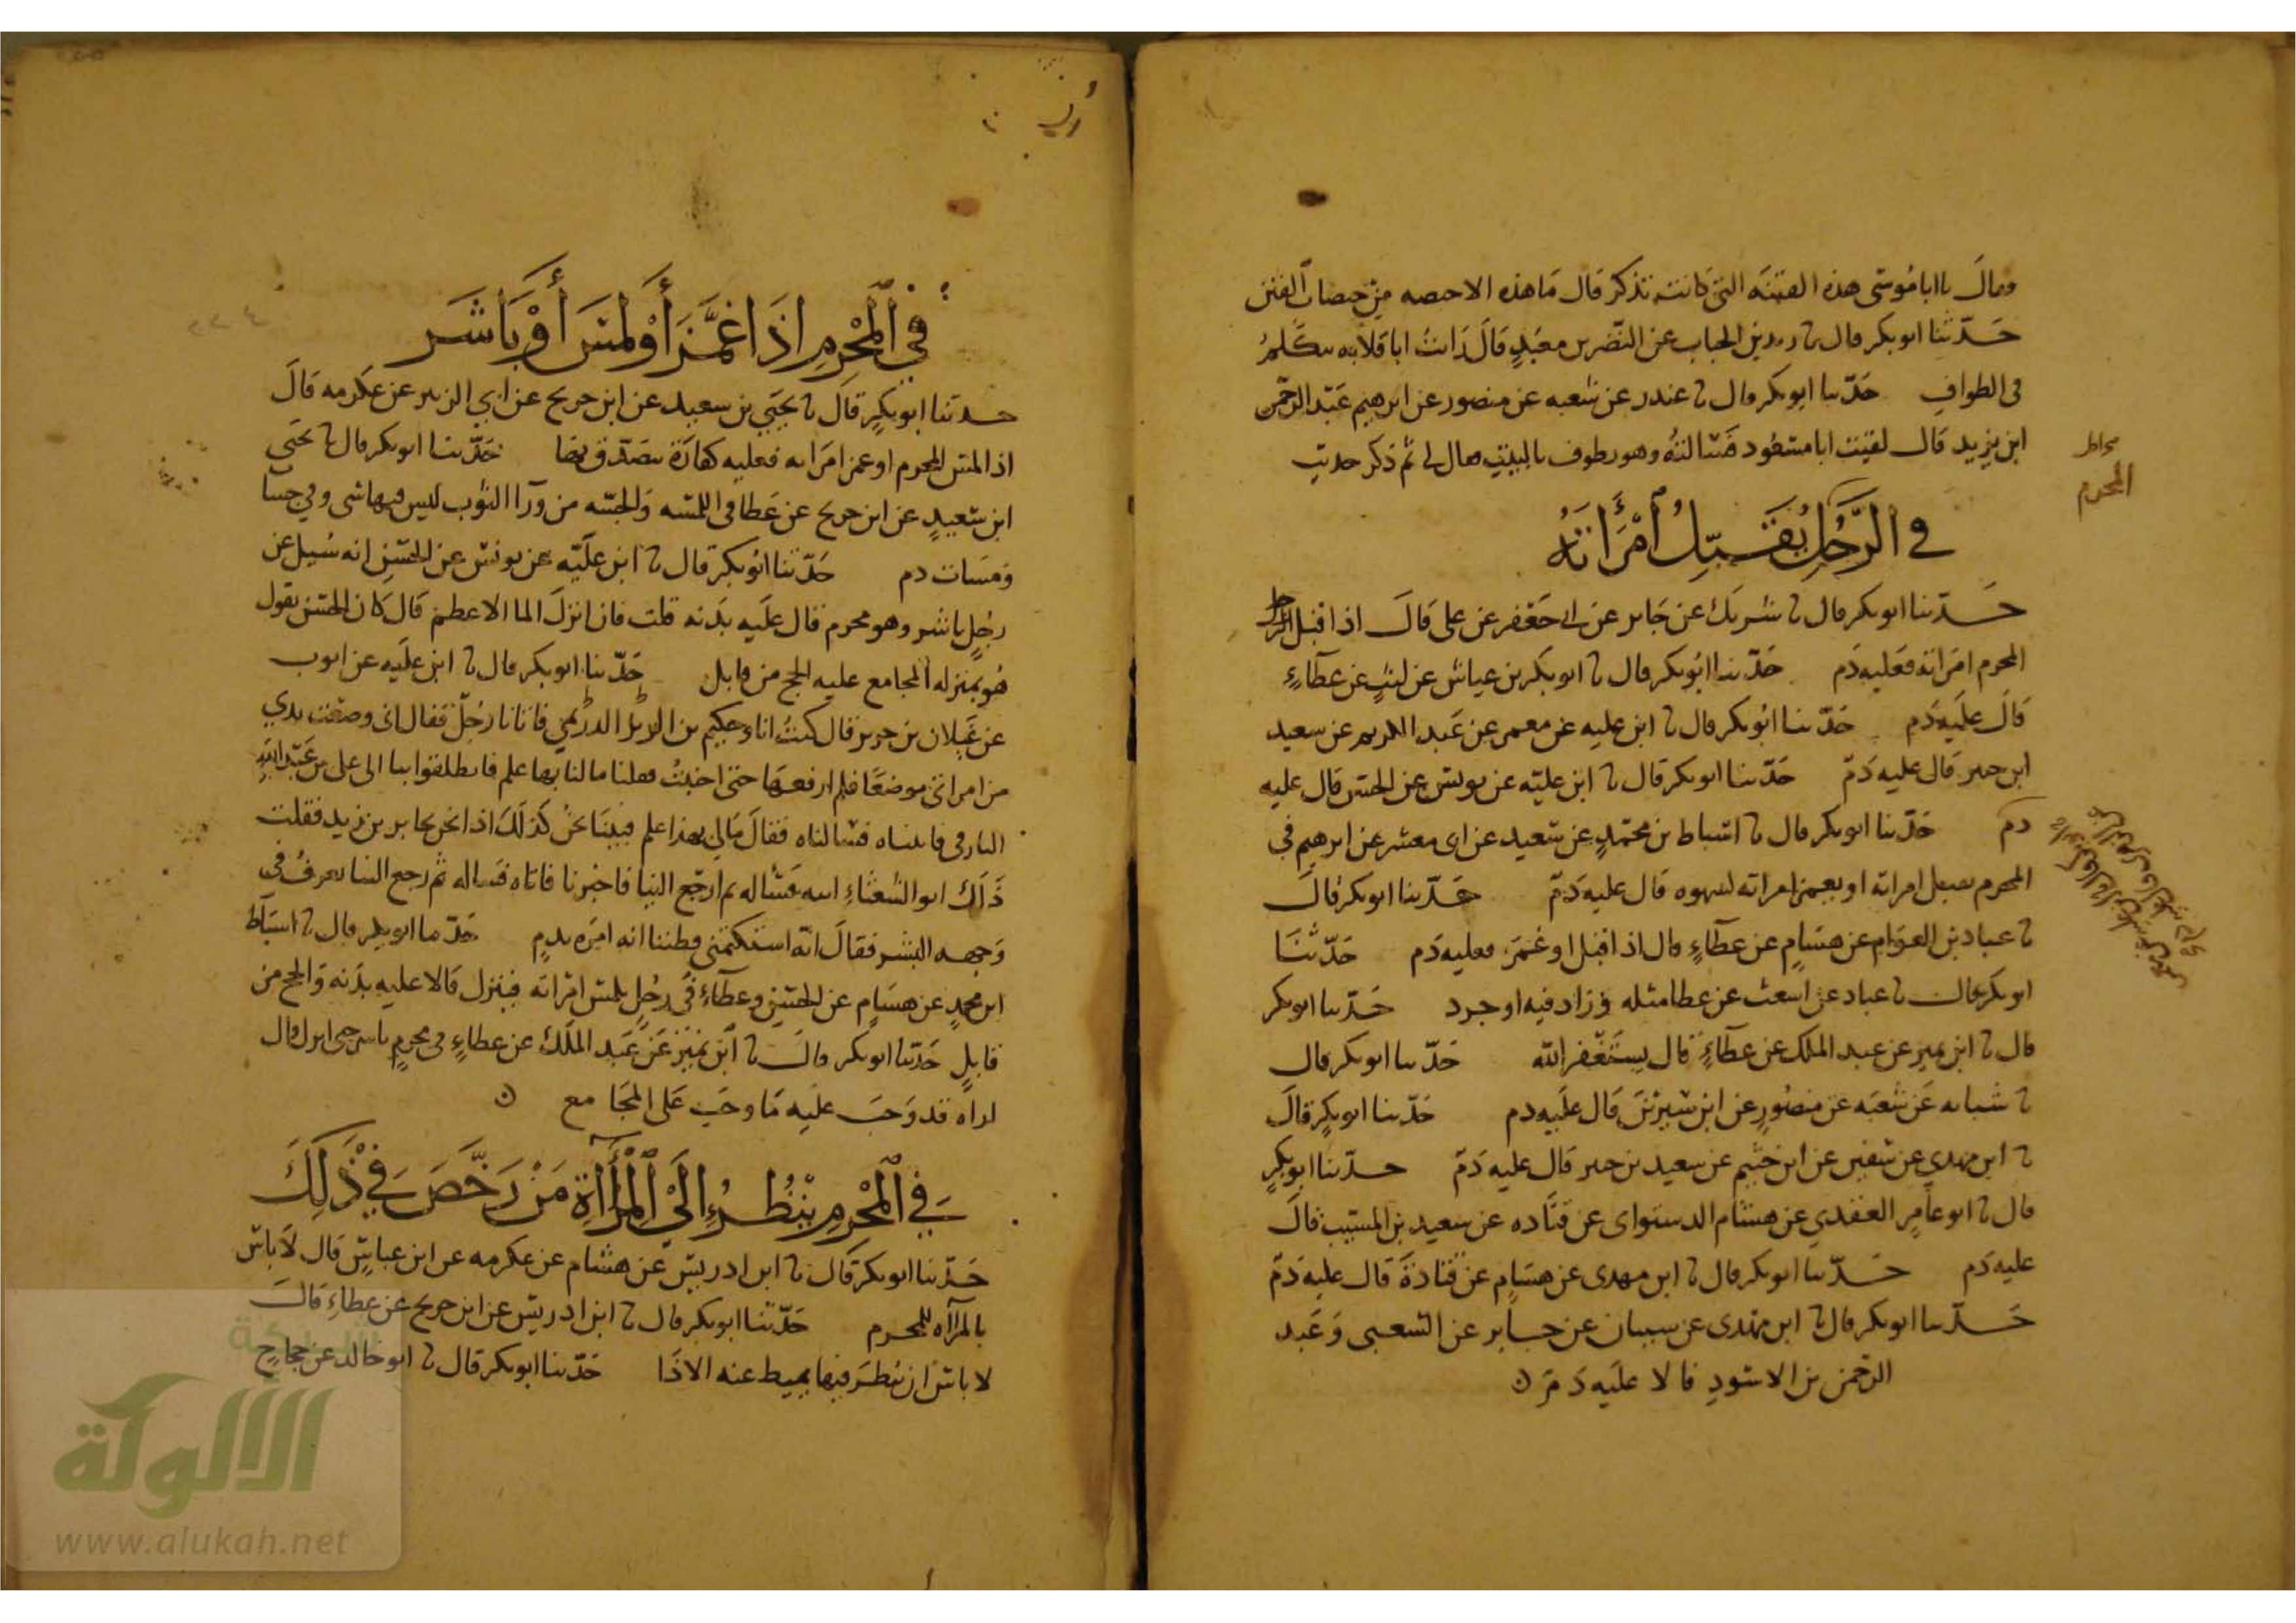 وقال يا ابا موسى هذه الفتنه التي كانت تذكر قال ما هذه الا حيصه من حيصات الفتن
حدثنا ابو بكر قال نا زيد بن الحباب عن النضر بن معبد قال رايت ابا قلابه يتكلم
في الطواف حدثنا ابو بكر قال نا غندر عن شعبه عن منصور عن ابرهيم عبد الرحمن
ابن يزيد قال لقيت ابا مسعود فسالته وهو يطوف بالبيت فقال لي ثم ذكر حديث
المحرم
في الرجل يقبل امراته
حدثنا ابو بكر قال نا شريك عن جابر عن ابي جعفر عن علي قال اذا قبل الرجل
المحرم امراته فعليه دم حدثنا ابو بكر قال نا ابو بكر بن عياش عن ليث عن عطاء
قال عليه دم حدثنا ابو بكر قال نا ابن عليه عن معمر عن عبد الكريم عن سعيد
ابن جبير قال عليه دم حدثنا ابو بكر قال نا ابن عليه عن يونس عن الحسن قال عليه
دم حدثنا ابو بكر قال نا اسباط بن محمد عن سعيد عن ابي معشر عن ابرهيم في
المحرم يقبل امراته او يغمز امراته لشهوه قال عليه دم حدثنا ابو بكر قال
نا عباد بن العوام عن هشام عن عطاء قال اذا قبل او غمز فعليه دم حدثنا
ابو بكر قال نا عباد عن اشعث عن عطا مثله وزاد فيه او جرد حدثنا ابو بكر
قال نا ابن نمير عن عبد الملك عن عطاء قال يستغفر الله حدثنا ابو بكر قال
نا شبابه عن شعبه عن منصور عن ابن سيرين قال عليه دم حدثنا ابو بكر قال
نا ابن مهدي عن سفين عن ابن خثيم عن سعيد بن جبير قال عليه دم حدثنا ابو بكر
قال نا ابو عامر العقدي عن هشام الدستواي عن قتاده عن سعيد بن المسيب قال
عليه دم حدثنا ابو بكر قال نا ابن مهدي عن هشام عن قتادة قال عليه دم
حدثنا ابو بكر قال نا ابن مهدي عن سفيان عن جابر عن الشعبي وعبد
الرحمن بن الاسود قالا عليه دم ن
في المحرم اذا غمز أو لمس أو باشر
حدثنا ابو بكر قال نا يحيي بن سعيد عن ابن جريج عن ابي الزبير عن عكرمه قال
اذا لمس المحرم او غمز امراته فعليه كفارة يتصدق بها حدثنا ابو بكر قال نا يحيى
ابن سعيد عن ابن جريج عن عطا في اللمسه والجسه من ورآ الثوب ليس فيها شي وفي جسات
ومسات دم حدثنا ابو بكر قال نا ابن عليه عن يونس عن الحسن انه سيل عن
رجل باشر وهو محرم قال عليه بدنه قلت فان انزل الما الاعظم قال كان الحسن يقول
هو بمنزله المجامع عليه الحج من قابل حدثنا ابو بكر قال نا ابن عليه عن ايوب
عن غيلان بن جرير قال كنت انا وحكيم بن فاتانا رجل فقال اني وضعت يدي
من امراتي موضعا فلم ارفعها حتى اجنبت فقلنا ما لنا بها علم فانطلقوا بنا الى علي بن عبد الله
البارقي فاتيناه فسالناه فقال مالي بهذا علم فبينا نحن كذلك اذا نحن بجابر بن زيد فقلت
ذلك ابو الشعثاء ايته فساله ثم ارجع الينا فاخبرنا فاتاه فساله ثم رجع الينا يعرف في
وجهه البشر فقال انه استكتمني فظننا انه امره بدم حدثنا ابو بكر قال نا اسباط
ابن محمد عن هشام عن الحسن وعطاء في رجل يلمس امراته فينزل قالا عليه بدنه والحج من
قابل حدثنا ابو بكر قال نا ابن نمير عن عبد الملك عن عطاء في محرم باشر حتى انزل قال
اراه قد وجب عليه ما وجب على المجامع ن
في المحرم ينظر إلى المرآة من رخص في ذلك
حدثنا ابو بكر قال نا ابن ادريس عن هشام عن عكرمه عن ابن عباس قال لا باس
بالمرآه للمحرم حدثنا ابو بكر قال نا ابن ادريس عن ابن جريج عن عطاء قال
لا باس ان ينظر فيها يميط عنه الاذا حدثنا ابو بكر قال نا ابو خالد عن حجاج
شبكة
الألوكة
www.alukah.net